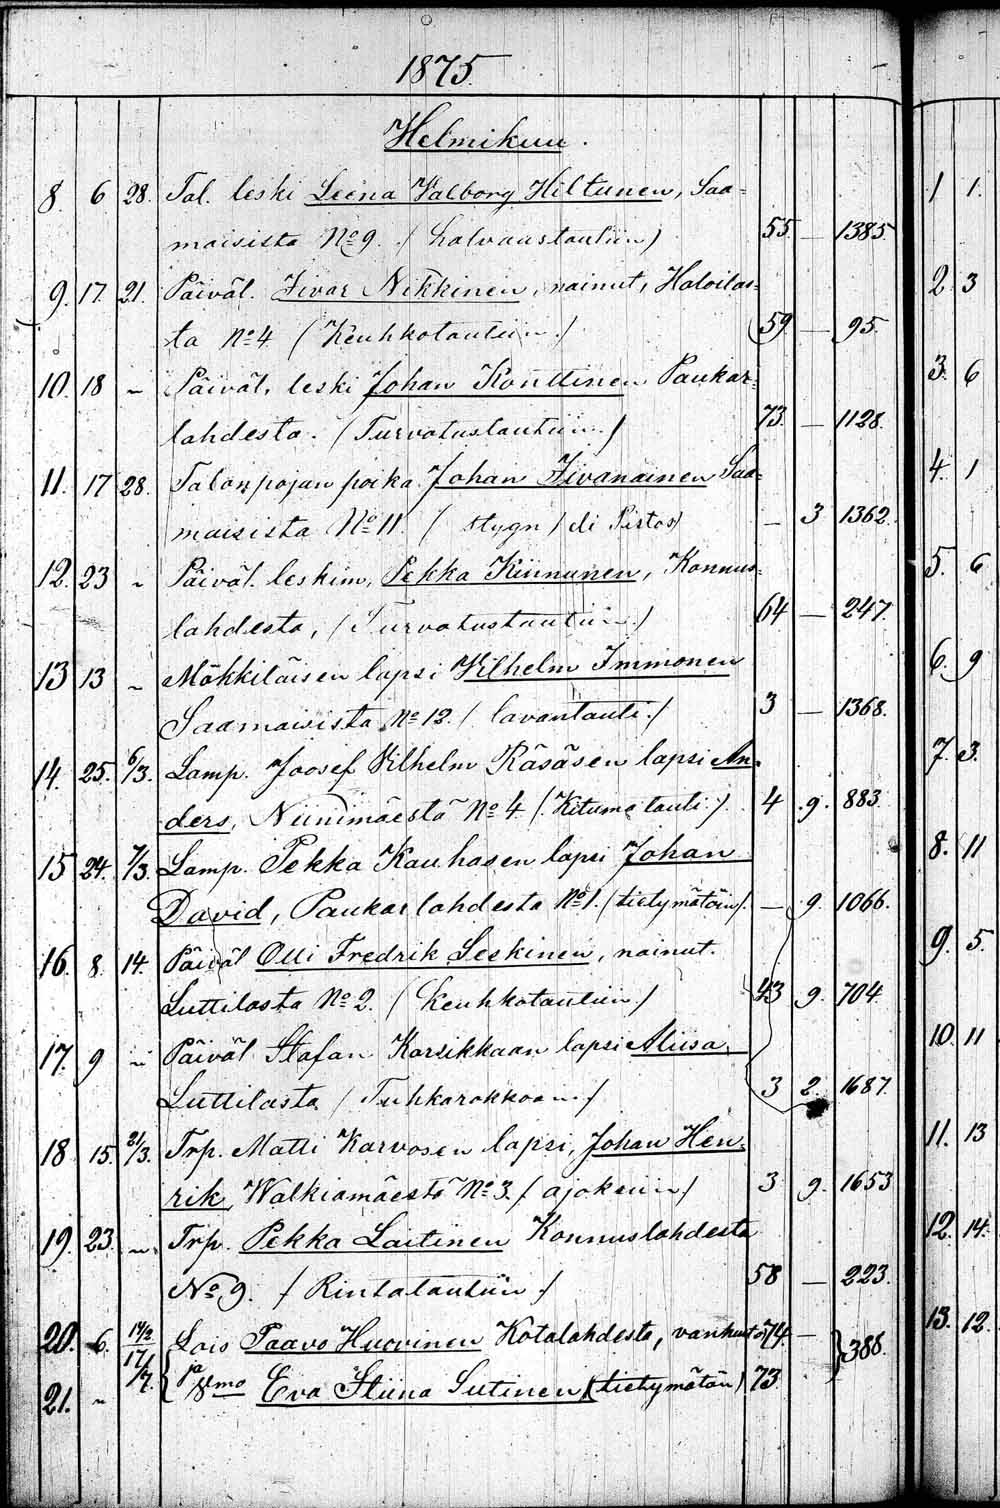 1875.
Helmikuu.
8. 6 28. Tal. leski Leena Valborg Hiltunen, Saa=
maisista No 9. (halvaustautiin) 55. — 1385.
9. 17. 21. Päiväl. Iivar Nikkinen, nainut, Haloilas=
ta No 4 (Keuhkotautiin.) 59 — 95.
10. 18 " Päiväl. leski Johan Konttinen Paukar=
lahdesta. (Turvotustautiin.) 73. — 1128.
11. 17 28. Talonpojan poika Johan Iivanainen Saa=
maisista No 11. — 3 1362.
12. 23 " Päiväl. leskim, Pekka Kiinunen, Konnus=
lahdesta, (Turvotustautiin.) 64 — 247.
13 13 " Mökkiläisen lapsi Vilhelm Immonen
Saamaisista No 12. (lavantauti.) 3 — 1368.
14. 25. 6/3. Lamp. Joosef Vilhelm Räsäsen lapsi An=
ders, Niinimäestä No 4 (Kitumatauti.) 4 9. 883.
15 24. 7/3. Lamp. Pekka Kauhasen lapsi Johan
David, Paukarlahdesta No 1. (tietymätöin). — 9. 1066.
16. 8. 14. Päiväl Olli Fredrik Leskinen, nainut.
Luttilasta No 2. (keuhkotautiin.) 43 9. 704.
17. 9 " Päiväl Stafan Karsikkaan lapsi Aliisa,
Luttilasta (Tuhkarokkoon.) 3 2. 1687.
18 15. 21/3. Trp. Matti Karvosen lapsi, Johan Hen=
rik, Walkiamäestä No 3. (ajoksiin) 3 9. 1653
19. 23. " Trp. Pekka Laitinen Konnuslahdesta
No 9. (Rintatautiin.) 58 — 223.
20. 6. 14/2 Lois Paavo Huovinen Kotalahdesta, vanhuut. 74 — 388.
21. " 17/7. ja Eva Stiina Sutinen, (tietymätön) 73
1 1.
2. 3
3. 6
4. 1
5. 6
6. 9
7. 3.
8. 11
9. 5.
10. 11
11. 13
12. 14.
13. 12.